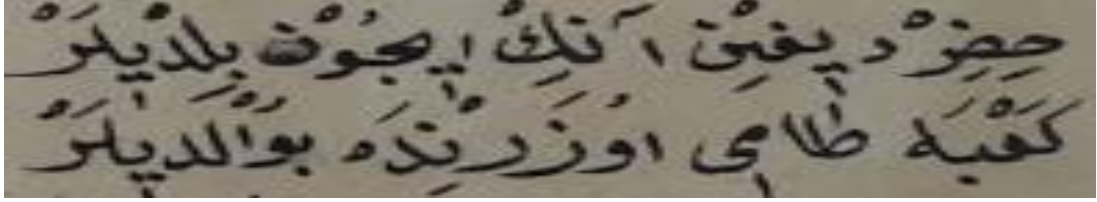 حِضِرْ دیغِنْ آنِكْ اِیچُوْن بِلِدْیلَرْ
كَعْبَه طَامِی اُوزَرِنْدَه بُوْالدیلَرْ